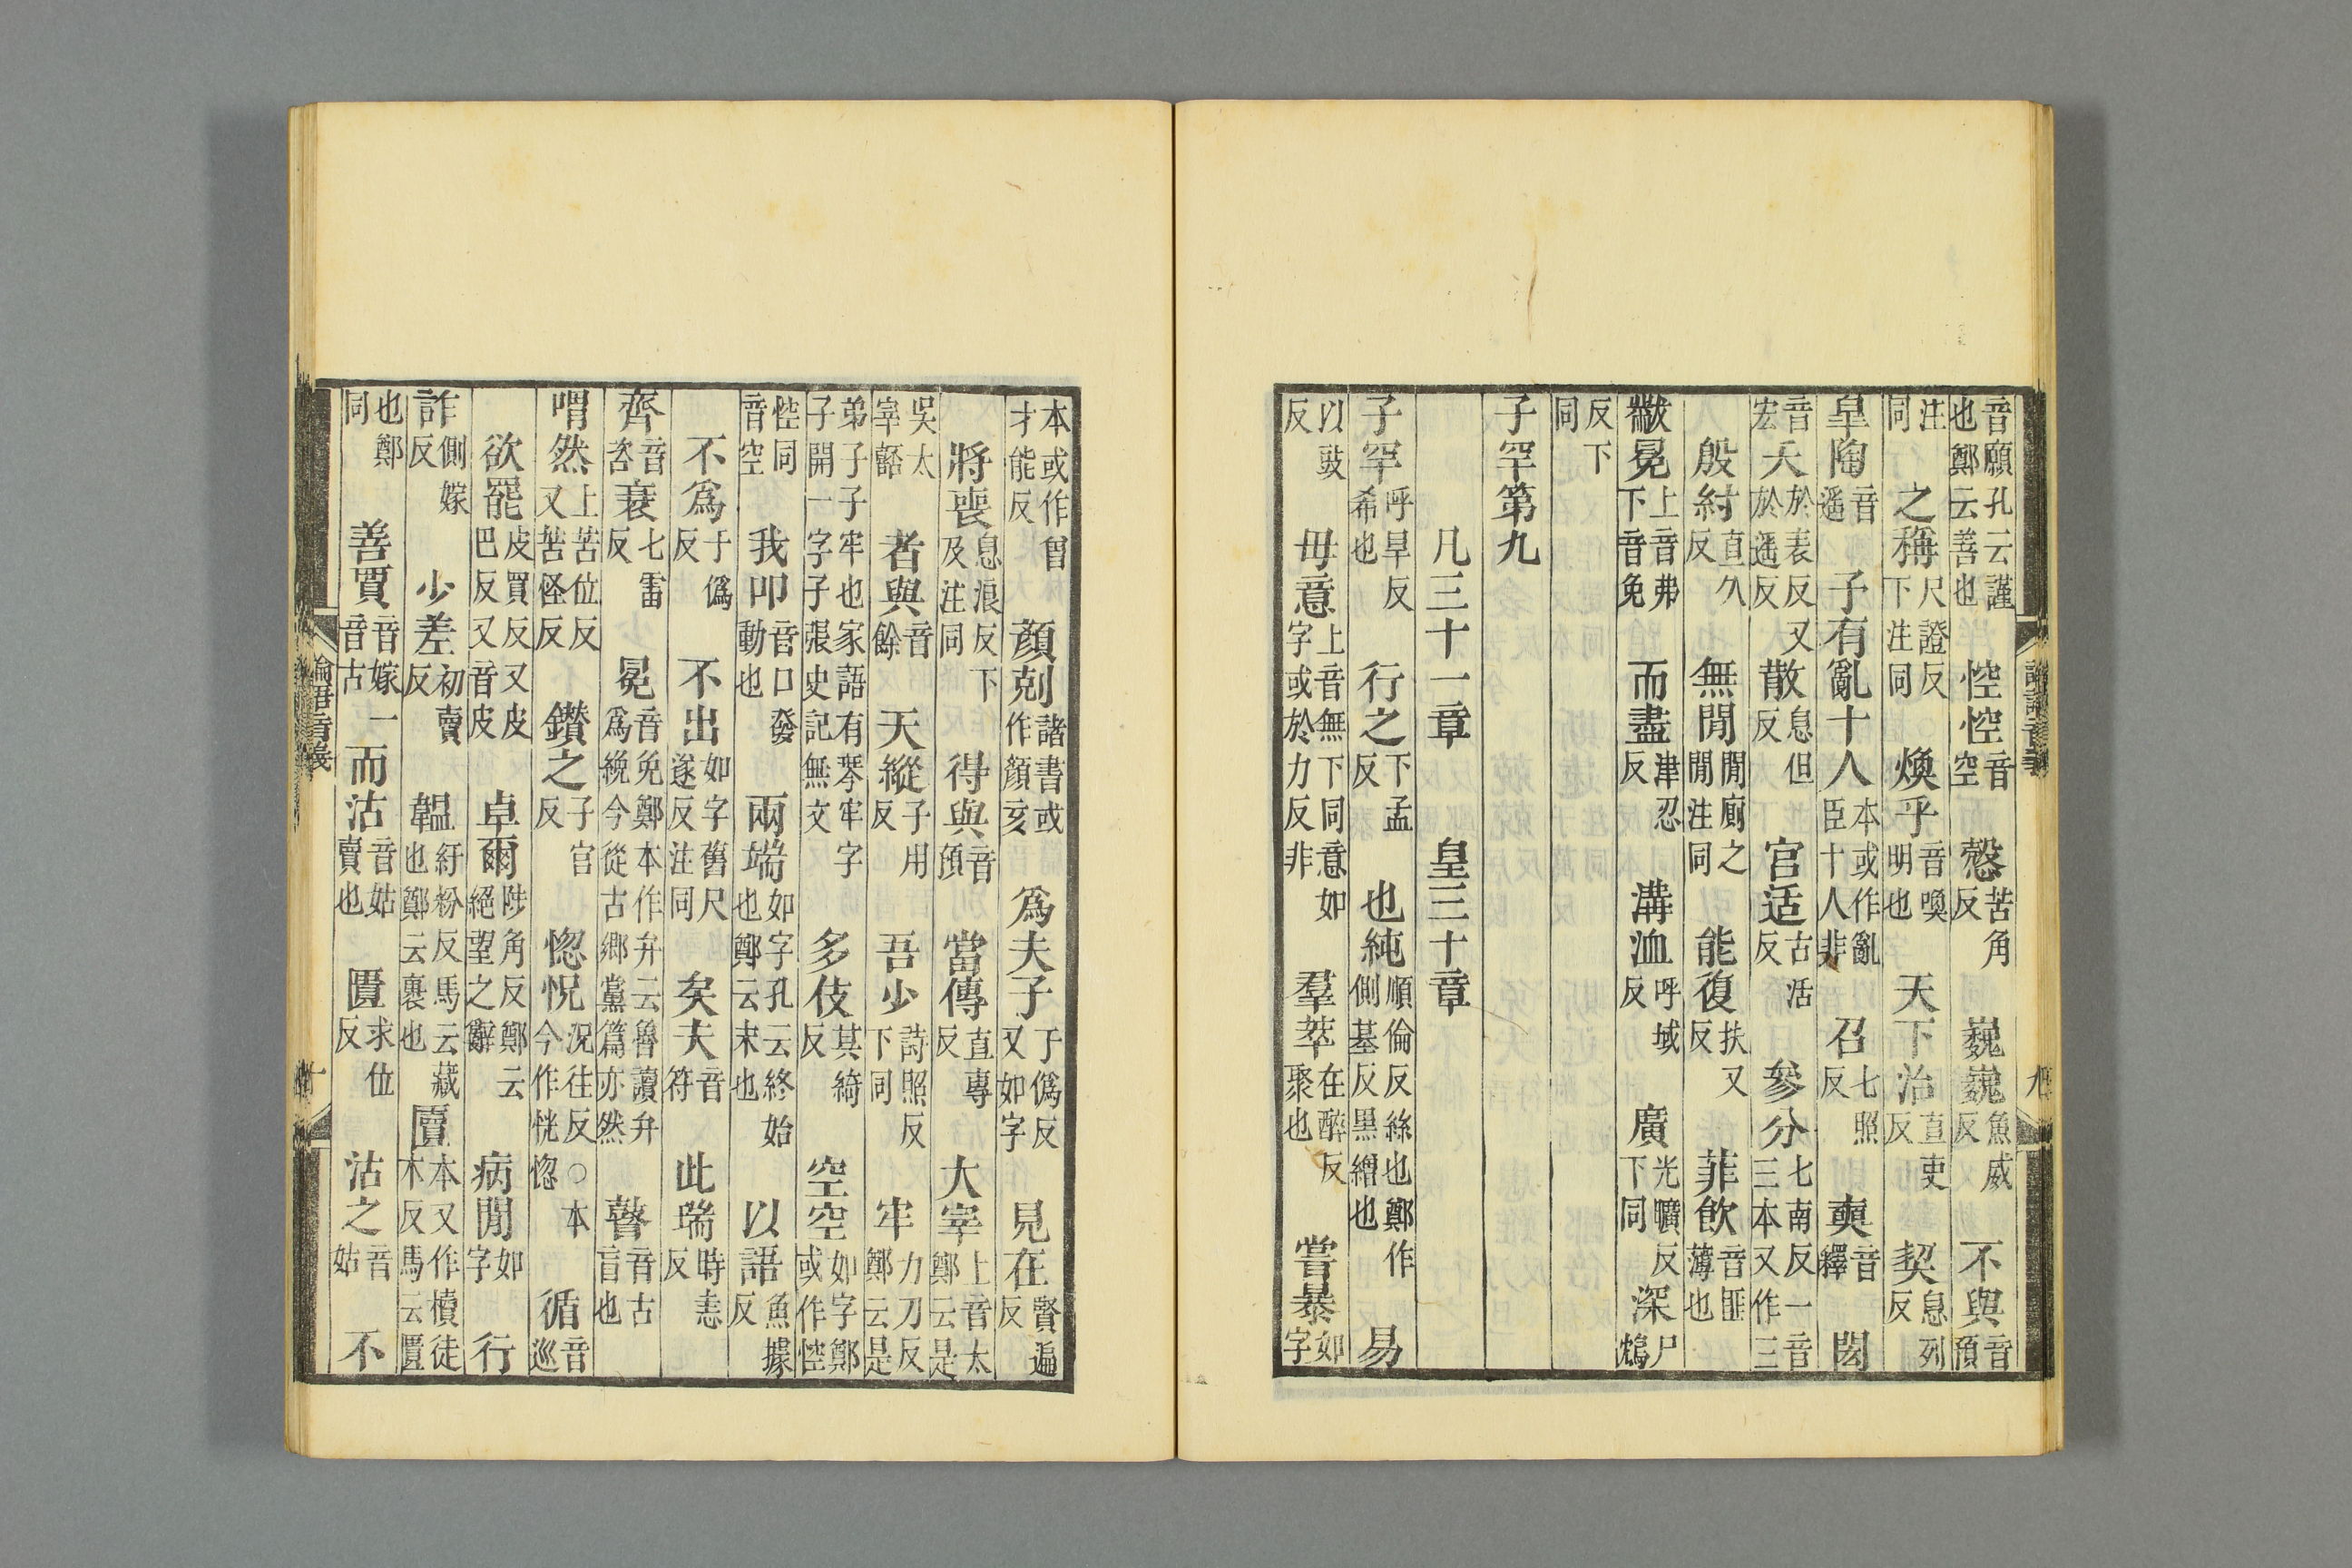 音願孔云謹也鄭云善也 悾悾音空 愨苦角反 巍巍魚威反 不與音預
注同 之稱尺證反下注同 煥乎音喚明也 天下治直吏反 契息列反
皐陶音遥 子有亂十人本或作亂臣十人非 召七照反 奭音繹 閎
音宏 夭於表反又於遥反 散息但反 宫适古活反 參分七南反一音三本又作三
殷紂直久反 無閒閒廁之閒注同 能復扶又反 菲飲音匪薄也
黻冕上音弗下音免 而盡津忍反 溝洫呼域反 廣光曠反下同 深尸鴆
反下同
子罕第九
凡三十一章 皇三十章
子罕呼旱反希也 行之下孟反 也純順倫反絲也鄭作側基反黒繒也 易
以豉反 毋意上音無下同意如字或於力反非 羣萃在醉反聚也 嘗暴如字
本或作曾才能反 顔剋諸書或作顔亥 爲夫子于僞反又如字 見在賢遍反
將喪息浪反下及注同 得與音預 當傳直專反 大宰上音太鄭云是
吳太宰嚭 者與音餘 天縱子用反 吾少詩照反下同 牢力刀反鄭云是
弟子子牢也家語有琴牢字子開一字子張史記無文 多伎其綺反 空空如字鄭或作悾
悾同音空 我叩音口發動也 兩端如字孔云終始也鄭云末也 以語魚據反
不爲于僞反 不出如字舊尺遂反注同 矣夫音符 此瑞時恚反
齊音咨 衰七雷反 冕音免鄭本作弁云魯讀弁爲絻今從古鄉黨篇亦然 瞽音古盲也
喟然上苦位反又苦怪反 鑽之子官反 惚怳況往反○本今作恍惚 循音巡
欲罷皮買反又皮巴反又音皮 卓爾陟角反鄭云絕望之辭 病閒如字 行
詐側嫁反 少差初賣反 韞紆粉反馬云藏也鄭云裹也 匵本又作櫝徒木反馬云匱
也鄭同 善賈音嫁一音古 而沽音姑賣也 匱求位反 沽之音姑 不
論語音義
九
論語音義
十